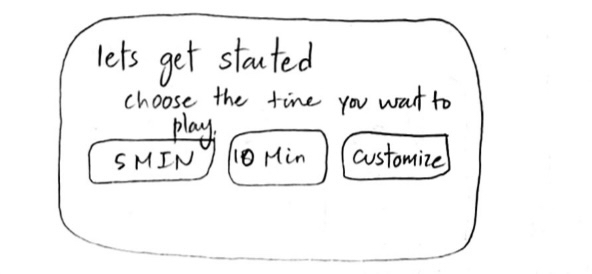 lets get started
choose the time you want to
play.
5 MIN
10 Min
Customize